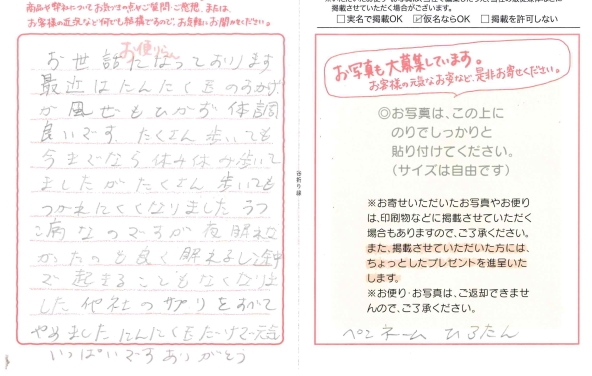 商品や弊社についてお気づきの点やご質問・ご感想、または、
お客様の近況など何でも結構ですので、お気軽にお聞かせください。
お便りらん
お世話になっております
最近はにんにく玉のおかげ
か風ぜもひかず体調
良いです。たくさん歩いても
今までなら休み休み歩いて
ましたがたくさん歩いても
つかれにくくなりましたうつ
病なのですが夜眠れな
かったのも良く眠えるし途中
で起きることもなくなりま
した他社のサプリをすべて
やめましたにんにく玉だけで元気
いっぱいですありがとう
谷折り線
掲載させていただく場合がございます。
□実名で掲載OK ☑仮名ならOK □掲載を許可しない
お写真も大募集しています。
お客様の元気なお姿など、是非お寄せください。
◎お写真は、この上に
のりでしっかりと
貼り付けてください。
(サイズは自由です)
※お寄せいただいたお写真やお便り
は、印刷物などに掲載させていただく
場合もありますので、ご了承ください。
また、掲載させていただいた方には、
ちょっとしたプレゼントを進呈いた
します。
※お便り・お写真は、ご返却できませ
んので、ご了承ください。
ペンネーム ひろたん